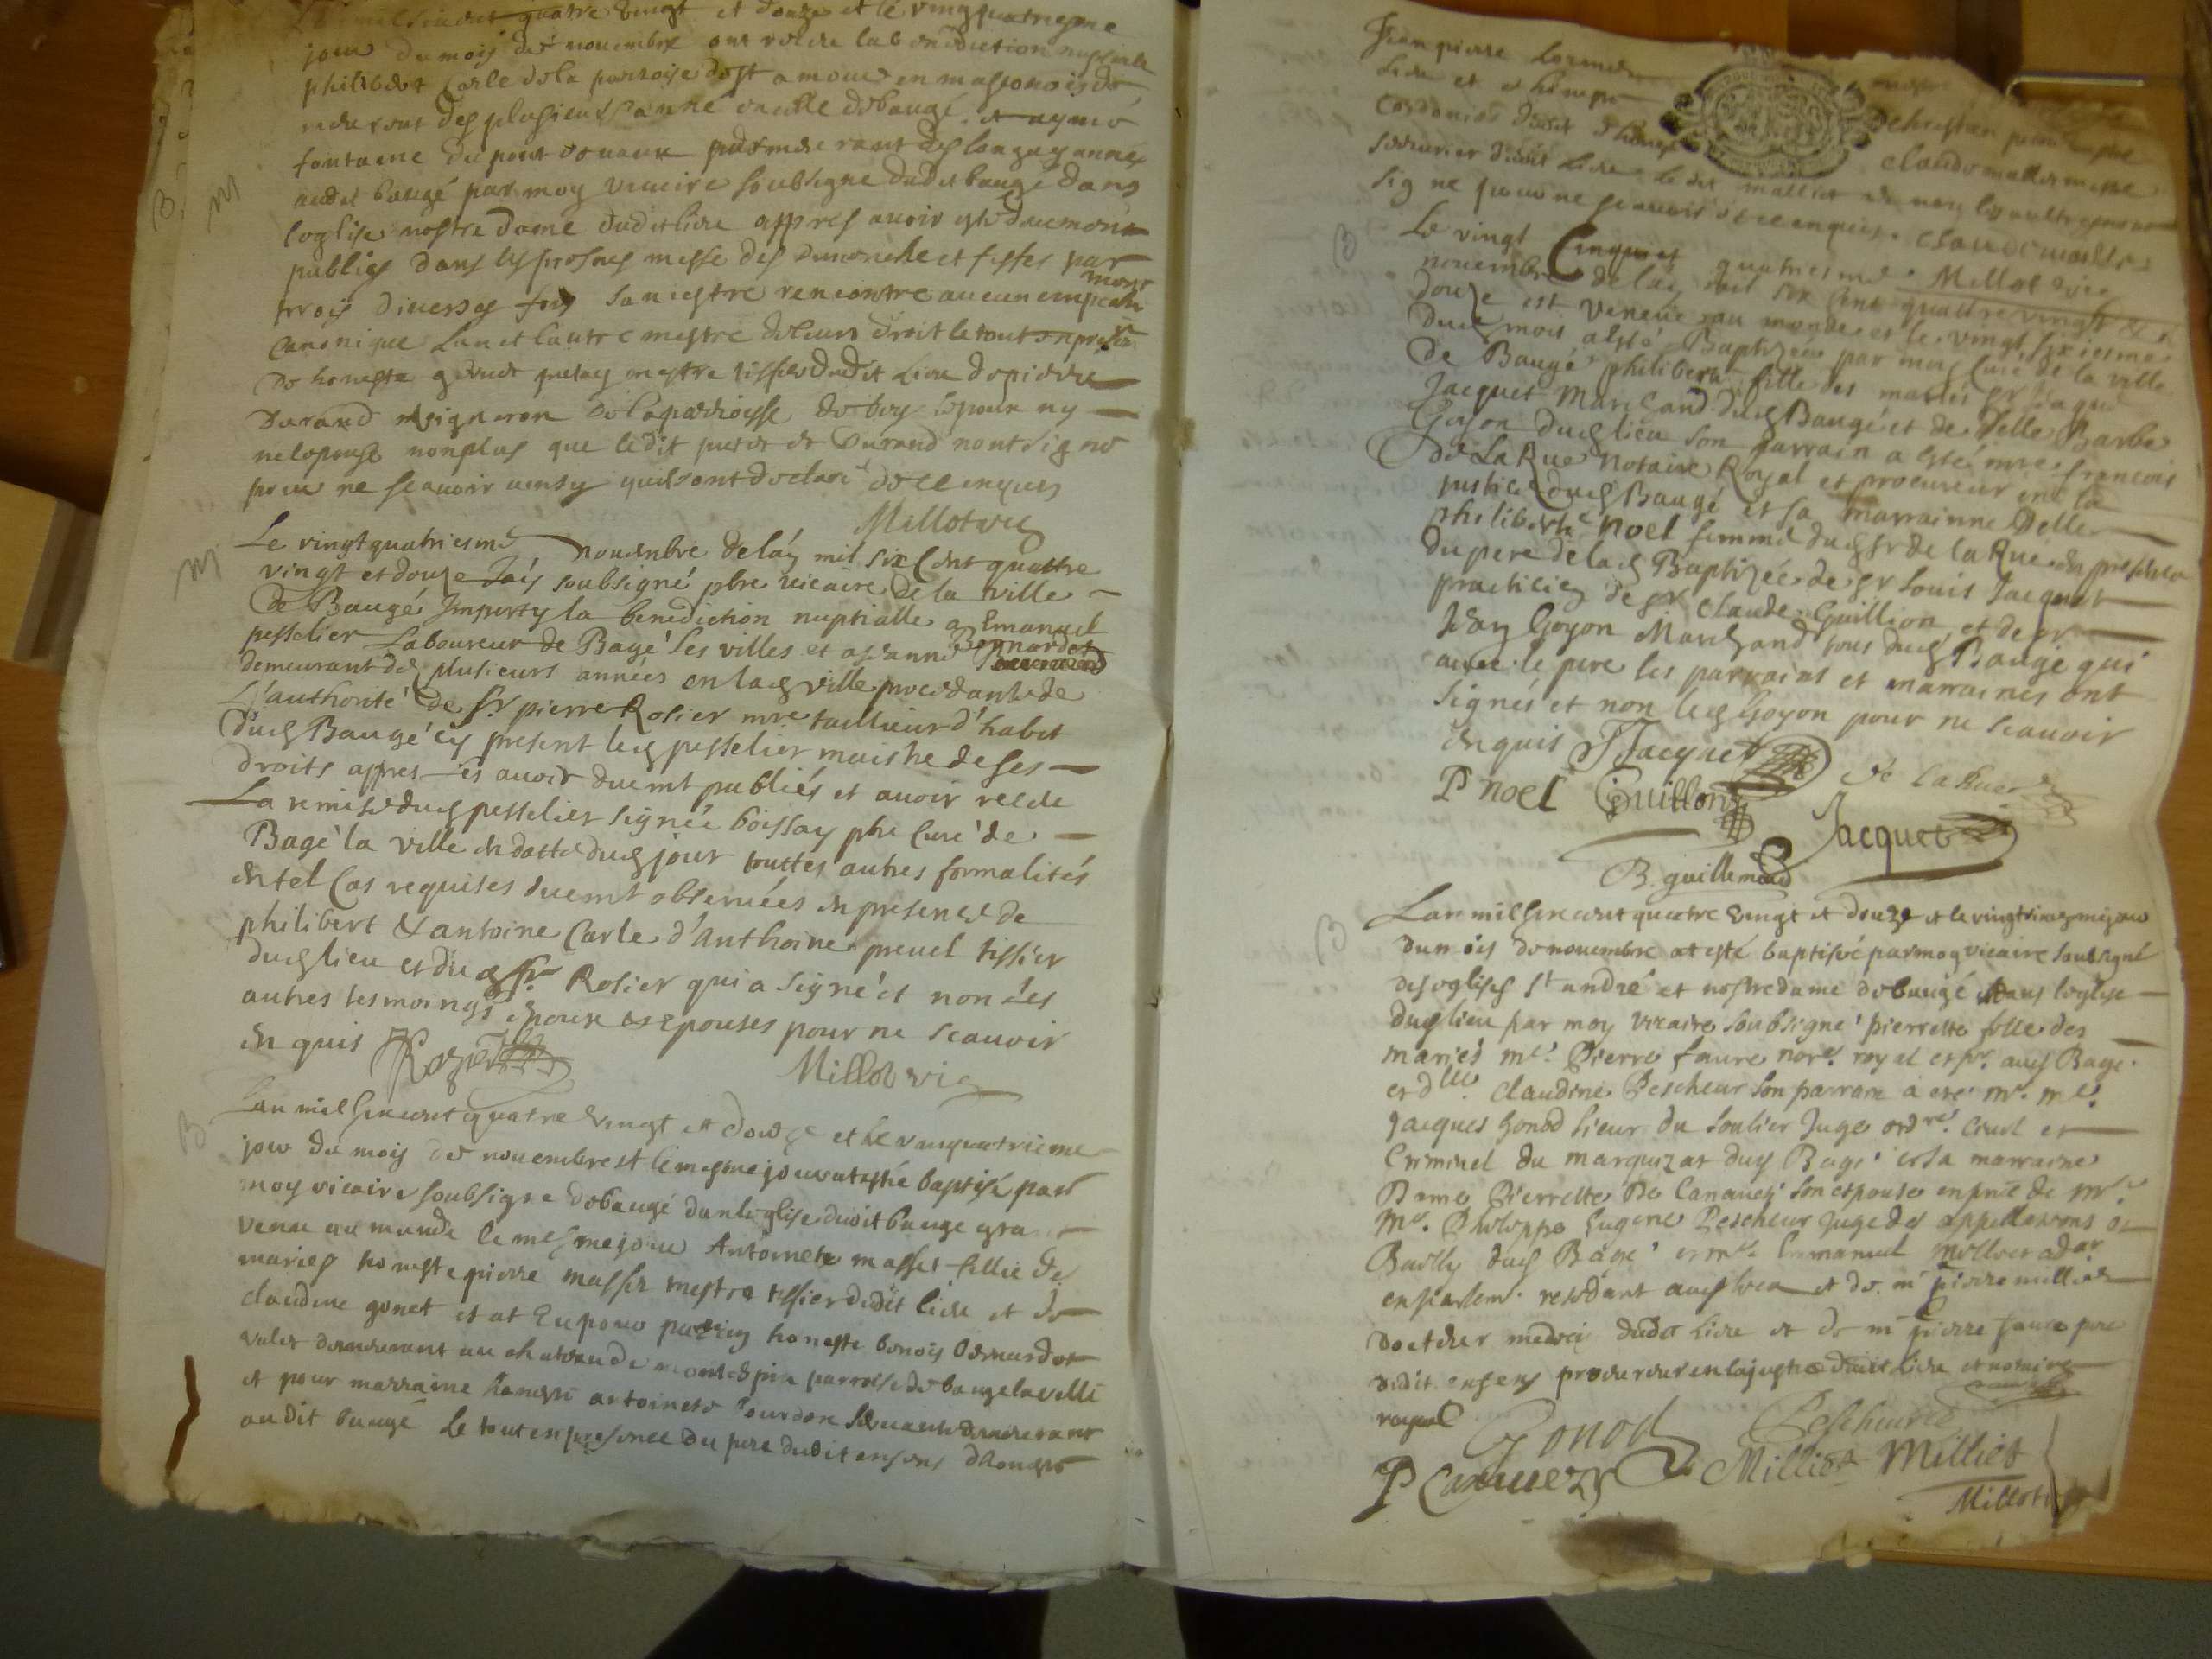 quatre vingt et douze et le vingquatriesme
jour du mois de novembre ont recue la benediction nuptiale
philibert Carle de la parroise de st amour en masconois de
meurant des plusieurs année en ville de baugé et aymé
fontaine du pont devaux demeurant des longues année
audit baugé par moy vicaire soubsigne dudit baugé dans
leglise nostre dame dudit lieu appres avoir esté duemont
publies dans les prosnes messe des dimanche et festes par
trois diverses fois sans estre rencontre aucun empeche
ment
canonique lun et lautre mestre de leurs droit le tout en presen
de honeste mestre tissier dudit lieu de pierre
Durand vigneron de la parroisse de lepoux ny
ne lepouse non plus que ledit et Durand nont signe
pour ne scavoir ainsy quils ont declaré de ce enquis
Millot vic
M
Le vingtquatriesme novembre de l'an mil six cent quattre
vingt et douze Jay soubsigné pbre vicaire de la ville
de Baugé Imparty la benediction nuptialle a Emanuel
pesselier Laboureur de Bagé les villes et a Jeanne Bernardet
demeurant des plusieurs années en lad ville procedante de
L'authorité de Sr pierre Rosier mre taillieur d'habit
dud Baugé cy present led pesselier maistre de ses
droits appres les avoir duemt publiés et avoir receu
La remise dud pesselier signée boissay pbre Curé de
Bagé la ville en datte dud jour touttes autres formalités
en tel Cas requises duemt observées en presence de
philibert & antoine Carle d'Anthoine prevel tissier
dud lieu et dud Sr Rosier qui a signé et non les
autres tesmoings epoux et epouses pour ne scavoir
enquis Rozier
Millot vic
B
Lan mil six cent quatre vingt et douze et le vinquatrieme
jour du mois de novembre et le mesme jour at esté baptisé par
moy vicaire soubsigne de baugé dans leglise dudit bauge
venue au monde le mesme jour Antoinete masset fillie des
maries honeste pierre masset mestre tissier dudit lieu et de
claudine gonet et at eu pour parrin honeste benois bernardet
valet demeurant au chateau de montespin parroise de bauge la ville
et pour marraine honeste antoinete bourdon servante demeurant
audit baugé Le tout en presence du pere dudit enfens d honeste
Jean pierre
lieu et d honeste
Cordonier dudit d'honeste Claude mallet mestre
serrurier dudit lieu le dit malliet a non les aultres
signe pour ne scavoir de ce enquis. Claude malliet
Millot vic
B
Le vingt Cinq et quatriesme
novembre de lan mil six cent quattre vingt &
douze est veneue au monde et le vingt sixiesme
dud mois a esté Baptizée par moy Curé de la ville
de Baugé philiberte fille des mariés Sr Jaque
Jacquet Marchand dud Baugé et de Delle Barbe
Goyon dud lieu son parrain a esté mre francois
De La Rue Notaire Royal et procureur en la
justice dud Baugé et sa marrainne Delle
philiberte Noel femme dud Sr de la Rue en presence
du pere de lad Baptizée de Sr Louis Jacquet
practicien de Sr Claude Guillion et de Sr
Jean Goyon Marchand tous dud Baugé qui
avec le pere les parrains et marraines ont
signés et non led Goyon pour ne scavoir
enquis J Jacquet De la Rue
P noel Guillon Jacquet
B. guillemaud
B
Lan mil six cent quatre vingt et douze et le vingt sixiesme jour
du mois de novembre at esté baptisée par moy vicaire soubsigné
des eglises St andré et nostre dame de baugé dans leglise
dud lieu par moy vicaire soubsigné pierrette fille des
mariés me. Pierre faure nore. royal et pr. aud Bage.
et dlle. Claudine Pescheur son parrain a esté mr. me.
Jacques Gonod sieur du Soulier Juge ordre. Civil et
Criminel du marquizat dud Bagé et sa marraine
Dame Pierrette De Canauezy son espouse en pnce de mr.
me. Philippe Eugene Pescheur Juge des appellations de
Bailly dud Bagé et me Emmanuel Milliet adat
en parlemt. residant aud lieu et de mr pierre millier
docteur medeci dudit lieu et de mr pierre faure pere
dudit enfens procureur en la justice dudit lieu et notaire
royal Gonod Pescheur
P Canuezy Millier Milliet
Millot vic